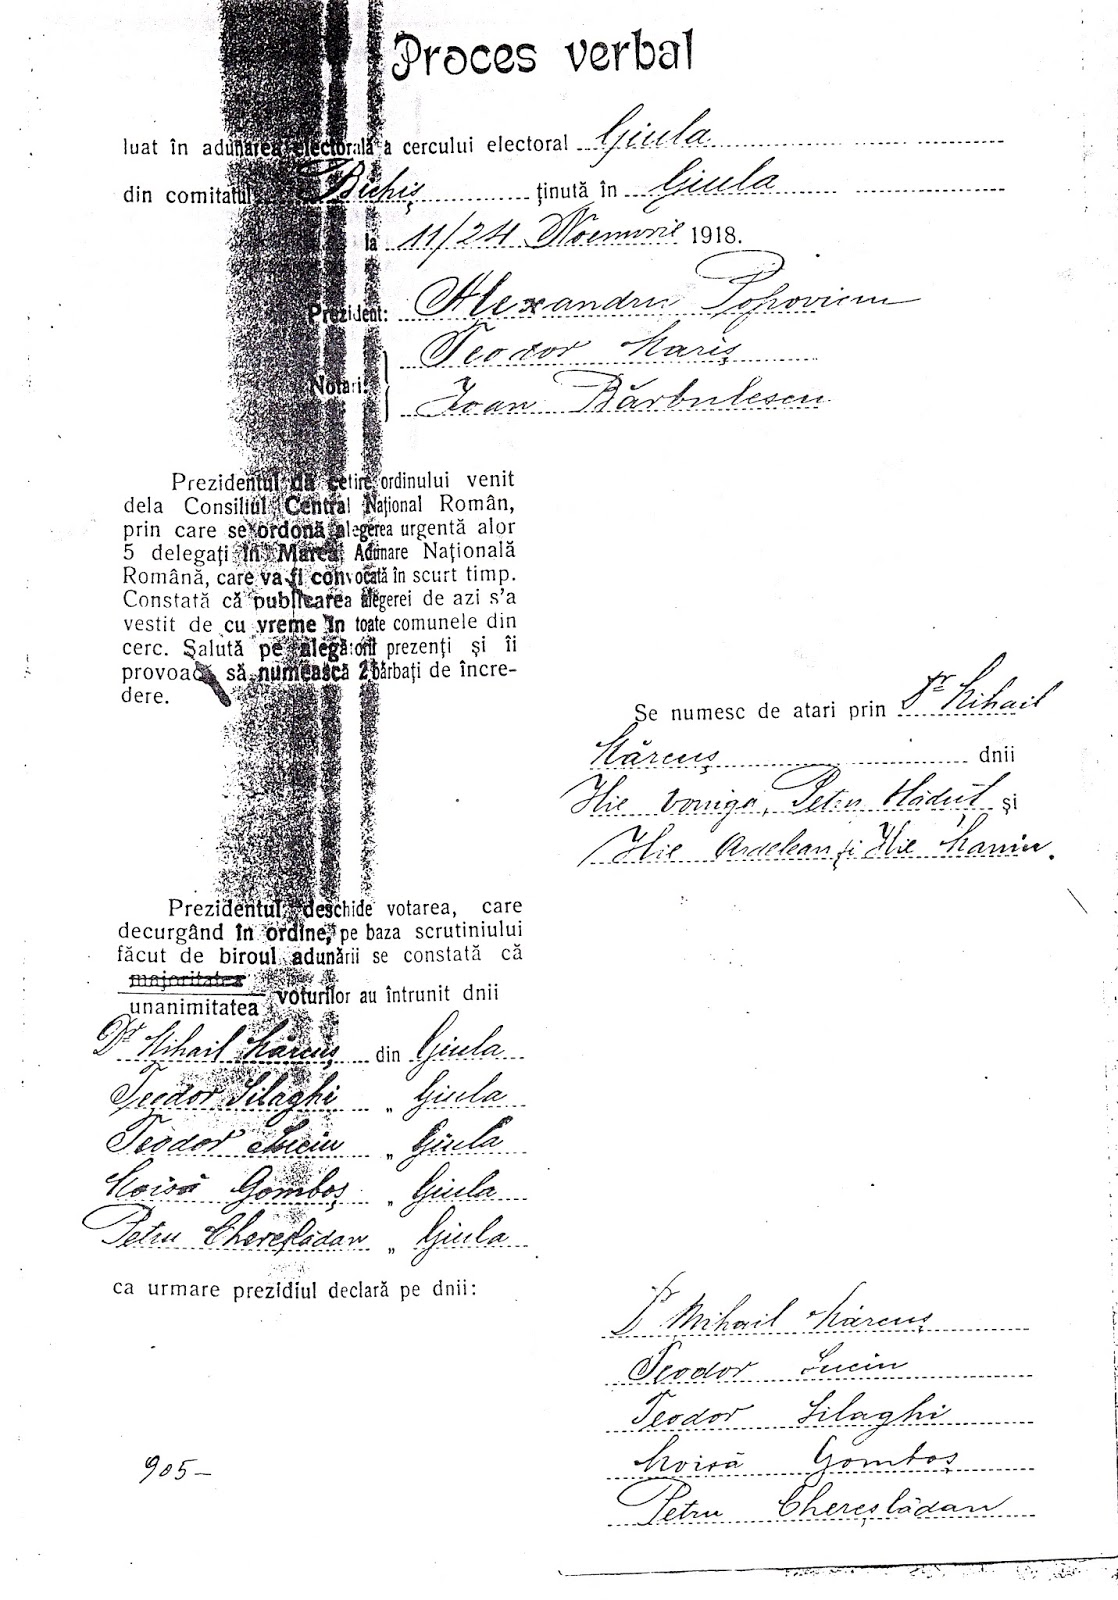 Proces verbal
luat în adunarea electorală a cercului electoral Giula
din comitatul Bichiș ținută în Giula
la 11/24 Noemvrie 1918.
Prezident: Alexandru Popoviciu
Teodor Mariș
Notari:
Ioan Bărbulescu
Prezidentul dă cetire ordinului venit
dela Consiliul Central Național Român,
prin care se ordonă alegerea urgentă alor
5 delegați în Marea Adunare Națională
Română, care va fi convocată în scurt timp.
Constată că publicarea alegerei de azi s'a
vestit de cu vreme în toate comunele din
cerc. Salută pe alegătorii prezenți și îi
provoacă să numească 2 bărbați de încre-
dere.
Se numesc de atari prin Dr Mihail
Mărcuș dnii
Ilie Petru și
Ilie Ardelean și Ilie
Prezidentul deschide votarea, care
decurgând în ordine, pe baza scrutiniului
făcut de biroul adunării se constată că
majoritatea
unanimitatea voturilor au întrunit dnii
Dr Mihail Mărcuș din Giula
Teodor Silaghi „ Giula
Teodor Suciu „ Giula
Moisă Gomboș „ Giula
Petru Chereșlădan „ Giula
ca urmare prezidiul declară pe dnii:
Dr Mihail Mărcuș
Teodor Suciu
Teodor Silaghi
Moisă Gomboș
Petru Chereșlădan
905–